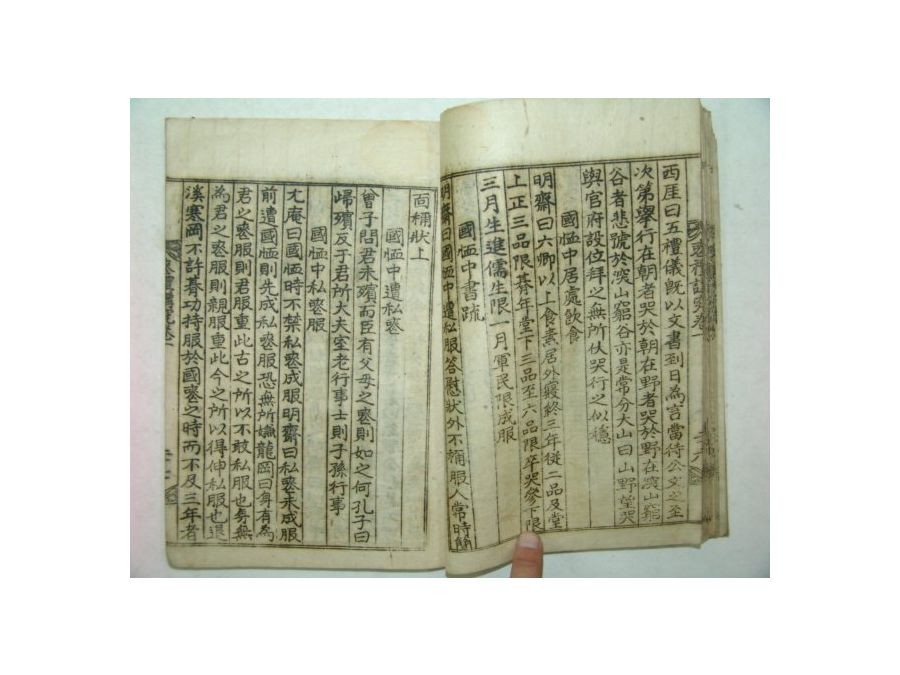 西厓曰五禮儀旣以文書到日爲言當待公文之至
次第擧行在朝者哭於朝在野者哭於野在深山窮
谷者悲號於深山窮谷亦是常分大山曰山野望哭
與官府設位拜之無所仗哭行之似穩
國恤中居處飮食
明齋曰六卿以上食素居外寢終三年從二品及堂
上正三品限朞年堂下三品至六品限卒哭參下限
三月生進儒生限一月軍民限成服
國恤中書疏
明齋曰國恤中遭私服答慰狀外不稱服人常時簡
面稱狀上
國恤中遭私喪
曾子問君未殯而臣有父母之喪則如之何孔子曰
歸殯反于君所大夫室老行事士則子孫行事
國恤中私喪服
尤庵曰國恤時不禁私喪成服明齋曰私喪未成服
前遭國恤則先成私喪服恐無所嫌龍岡曰身有爲
君之喪服則君服重此古之所以不敢私服也身無
爲君之喪服則親服重此今之所以得伸私服也退
溪寒岡不許朞功持服於國喪之時而不及三年者